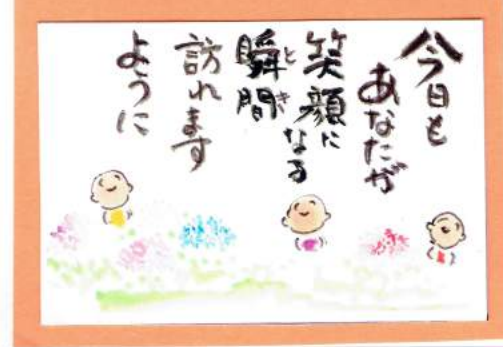 今日も
あなたが
笑顔に
なる
瞬間
とき
訪れます
ように